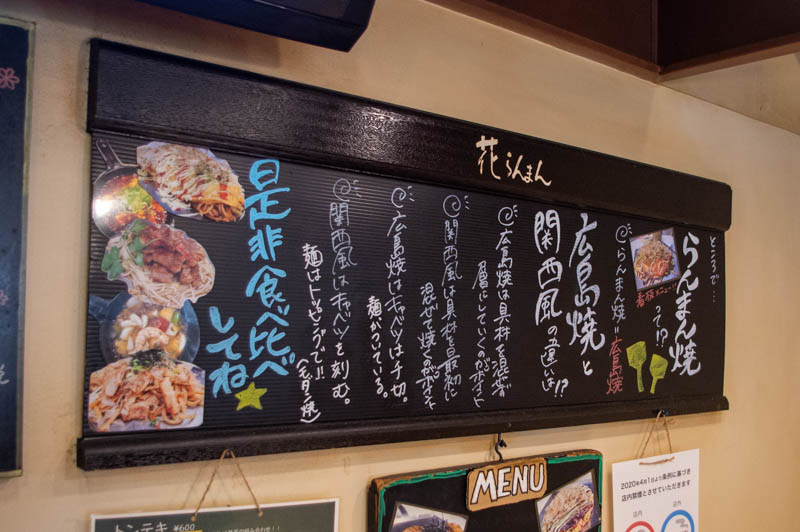 花らんまん
ところで…
らんまん焼
って!?
看板メニュー!!
らんまん焼=広島焼
広島焼と
関西風の違いは!?
広島焼は具材を混ぜず
層にしていくのがポイント
関西風は具材を最初に
混ぜて焼くのがポイント
広島焼はキャベツは千切。
麺がついている。
関西風はキャベツを刻む。
麺はトッピングで!!
(モダン焼)
是非食べ比べ
してね
トンテキ ¥600
MENU
2020年4月1日より条例に基づき
店内禁煙とさせていただきます
店内
店外